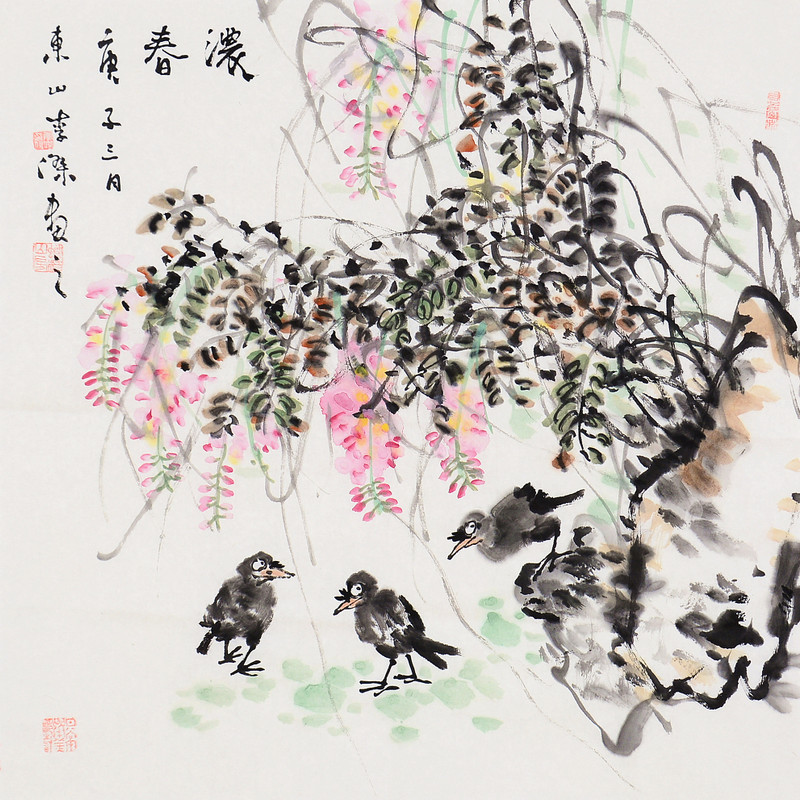 濃春
庚子三月
東山李傑畫之